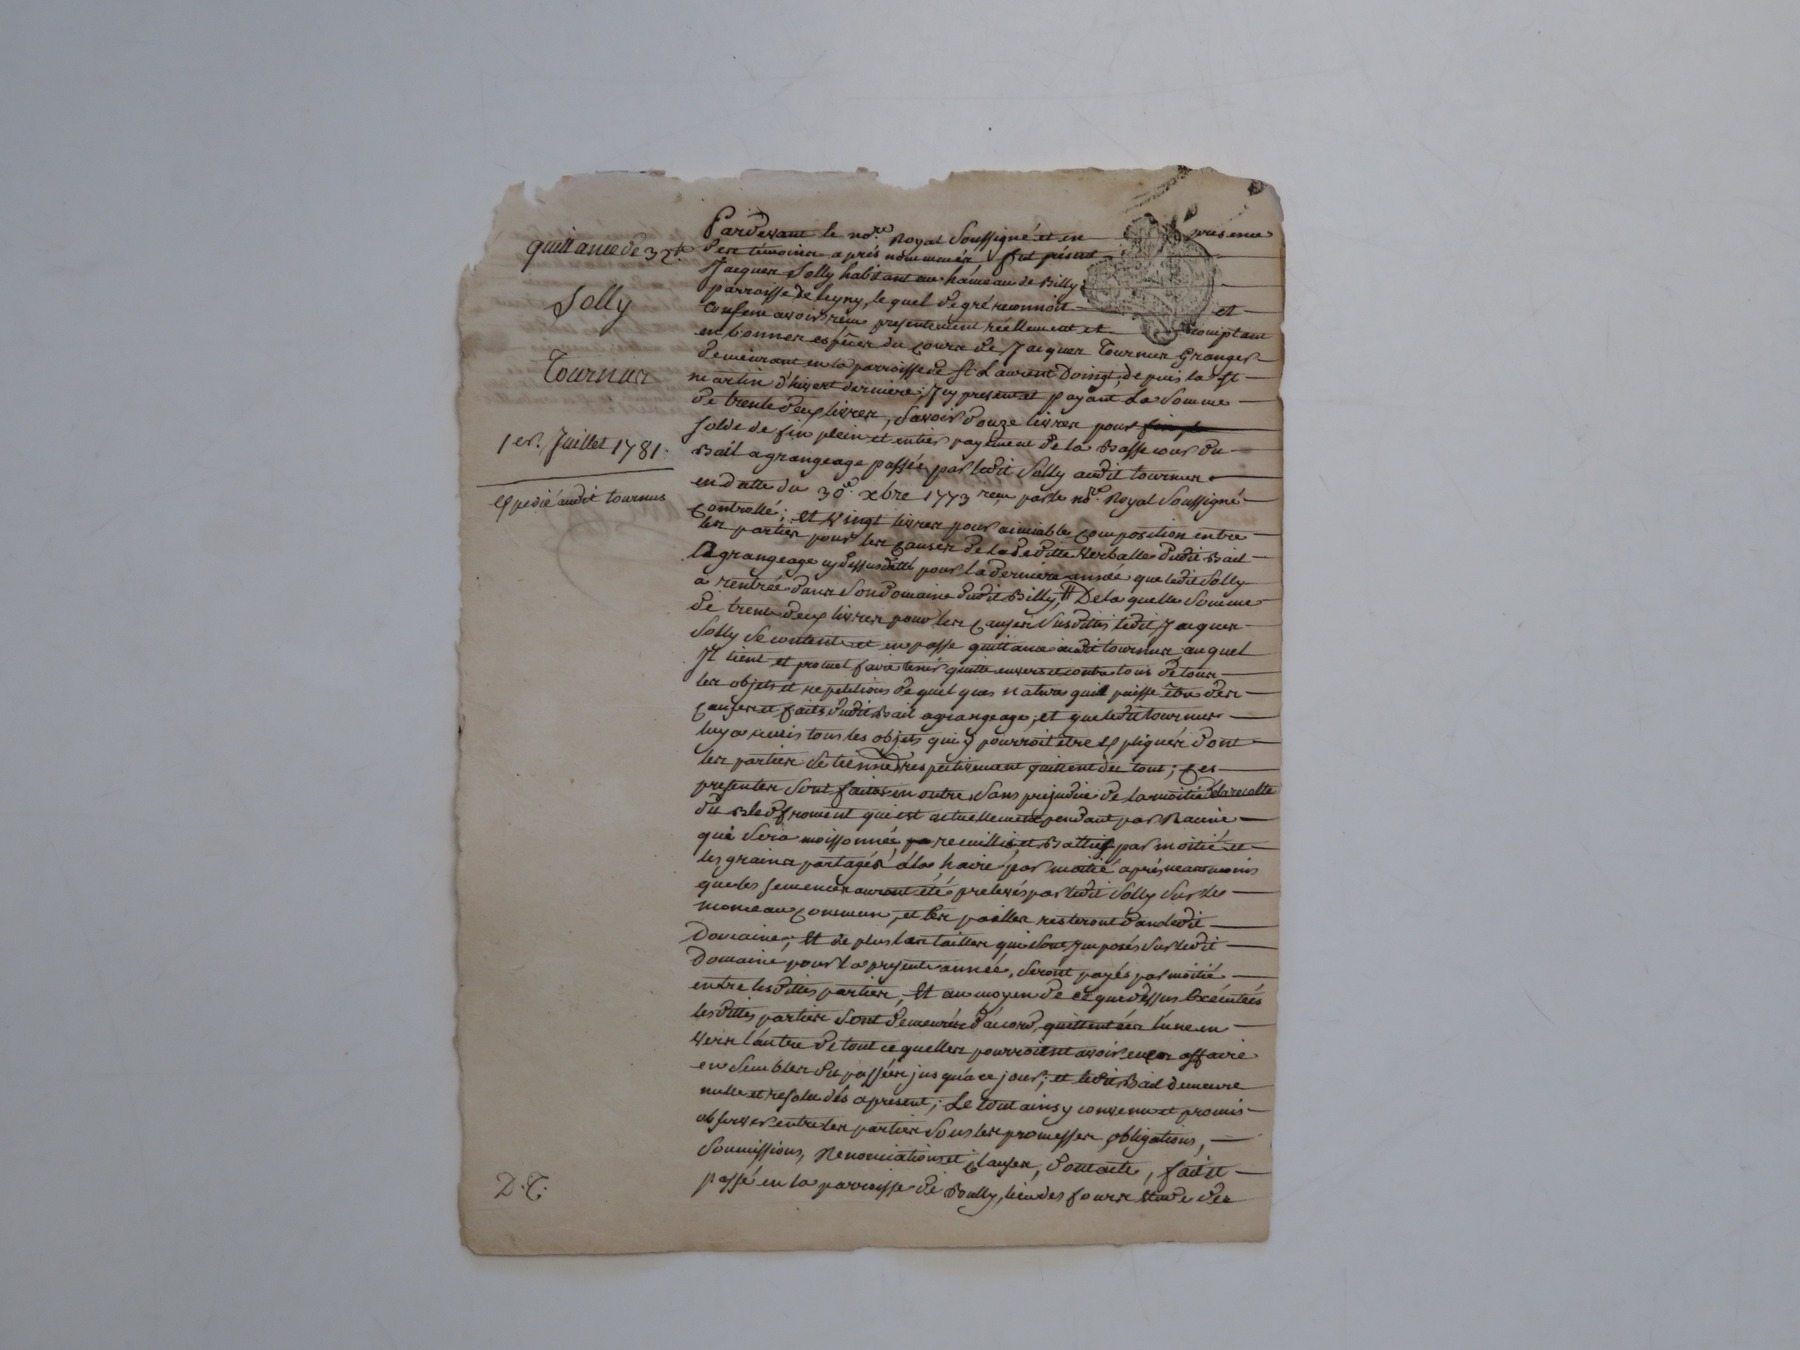 quittance de 32 lt
Solly
Tournier
1er. Juillet 1781.
Expedié audit tournier
D.T.
Pardevant le nore Royal Soussigné et en présence
des témoins après nommés, fut présent
Jacques Solly habitant au hameau de Billy
parroisse de legny, lequel de gré reconnoit et
Confesse avoir reçu presentement réellement et comptant
en bonnes espèces du Cours de Jacques Tournier Granger
demeurant en la parroisse de St. Laurent Doingt, depuis la St
martin d'hivert derniere, Icy present et payant La Somme
de trente deux livres, Savoir douze livres pour
Solde de fin plein et entier payement de la Basse cour du
Bail a grangeage passée par ledit Solly audit tournier
en datte du 30e. xbre 1773 reçu par le nore. Royal Soussigné
Controllé; et Vingt livres pour aimiable Composition entre
les parties pour les Causes de la deditte Verballe dudit Bail
a grangeage cy dessus datté pour la derniere année que ledit Solly
a rentrée dans Son domaine dudit Billy, De laquelle Somme
de trente deux livres pour les Causes Susdittes ledit Jacques
Solly Se contente et en passe quittance audit tournier, auquel
Il tient et promet faire tenir quitte envers et contre tous de tous
les objets et repetitions de quelques nature quil puisse être des
Causes et faits dudit Bail a grangeage, et que ledit tournier
luy a remis tous les objets qui y pourroit être Expliqués dont
les parties Se tiennes respectivement quittent du tout; Ces
presentes Sont faites en outre Sans prejudice de la moitié de la recolte
du Bled froment qui est actuellement pendant par Racine
qui Sera moissonnée, recuillie, et Battue par moitié et
les grains partagés a la haire par moitié aprés neanmoins
que les Semences auront été prelevés par ledit Solly Sur le
monceau Commun, et les pailles resteront dans ledit
Domaine; Et de plus les tailles qui Sont Imposés Sur ledit
Domaine pour la presente année, Seront payés par moitié
entre lesdittes parties, Et au moyen de ce que dessus Exécutés
lesdittes parties Sont demeurées d'acord, quittent été l'une en
vers l'autre de tout ce quelles pourroient avoir eu affaire
ensembles du passées jusqua ce jour; et ledit Bail demeure
nulle et resolu dès apresent; Le tout ainsy convenu et promis
observer entre les parties Sous les promesses, obligations,
Soumissions, Renonciations et Clauses, Dont acte, fait et
passé en la parroisse de Bully, lieu des fours Etude des